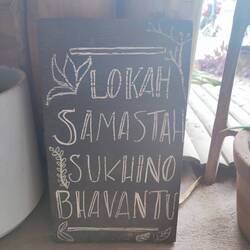 LOKAH
SAMASTAH
SUKHINO
BHAVANTU